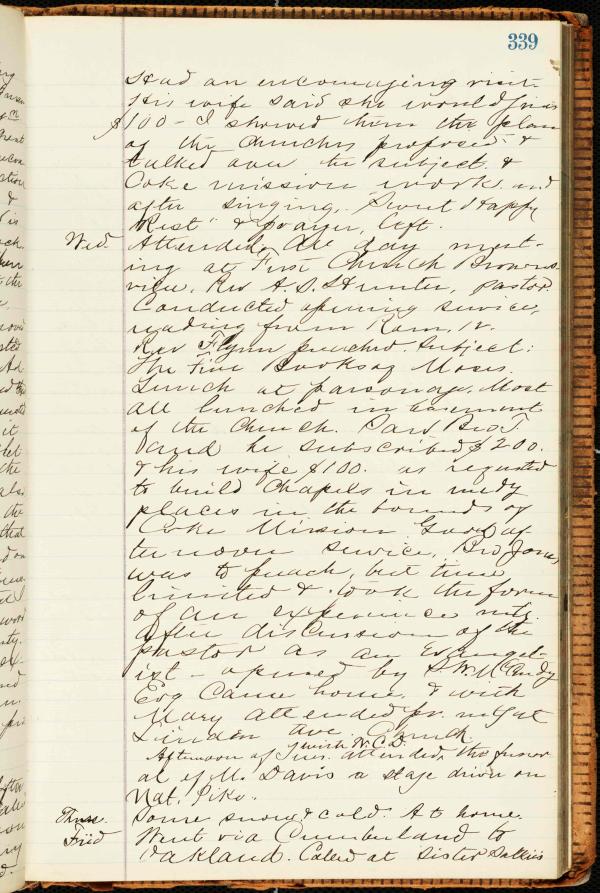 339
Had an encouraging visit.
His wife said she would give
$100 - I showed them the plan
of the churches proposed &
talked over the subject &
Coke mission work and
after singing, "Sweet Happy
Rest" & prayer, left.
Wed. Attended all day meet-
ing at First Church Browns-
ville, Rev A.S. Hunter, pastor.
Conducted opening service,
reading from Rom. 12.
Rev Flynn preached. Subject:
The Five Books of Moses.
Lunch at parsonage. Most
all lunched in basement
of the Church. Saw Bro T.
and he subscribed $200.
& his wife $100. as requested
to build Chapels in needy
places in the bounds of
Coke Mission. Good af
ternoon service, Bro Jones
was to preach, but time
limited & took the form
of an experience mtg.
after discussion of the
pastor as an Evangel-
ist - opened by S.W. McCurdy
Evg Came home & with
Mary attended pr. m. at
Linden Ave. Church.
with N.C.D.
Afternoon of Tues. attended the funer
al of M. Davis a stage driver on
Nat. Pike.
Thurs. Some snow & cold. At home.
Frid Went via Cumberland to
Oakland. Called at Sister